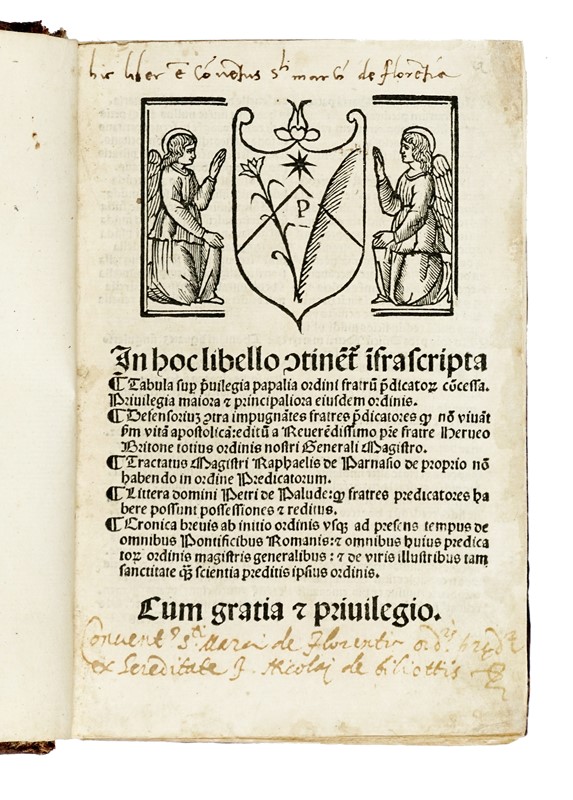 hic liber ē Cōvētus Sti marci de florētia
P
In hoc libello ↄtinēt̄ īfrascripta
¶ Tabula sup p̄uilegia papalia ordini fratrū p̄dicatoꝝ cōcessa.
Priuilegia maiora ⁊ principaliora eiusdem ordinis.
¶ Defensoriuꝫ ↄtra impugnātes fratres p̄dicatores ꝙ nō viuāt
ẜm vitā apostolicā: editū a Reuerēdissimo pr̄e fratre Herueo
Britone totius ordinis nostri Generali Magistro.
¶ Tractatus Magistri Raphaelis de Parnasio de proprio nō
habendo in ordine Predicatorum.
¶ Littera domini Petri de Palude: ꝙ fratres predicatores ha
bere possunt possessiones ⁊ reditus.
¶ Cronica breuis ab initio ordinis vsqꝫ ad presens tempus de
omnibus Pontificibus Romanis: ⁊ omnibus huius predica
toꝝ ordinis magistris generalibus: ⁊ de viris illustribus tam
sanctitate q̄ꝫ scientia preditis ipsius ordinis.
Cum gratia ⁊ priuilegio.
Convent9 Sti Marci de florentia ordis
ex hereditate f. Nicolaj de biliottis